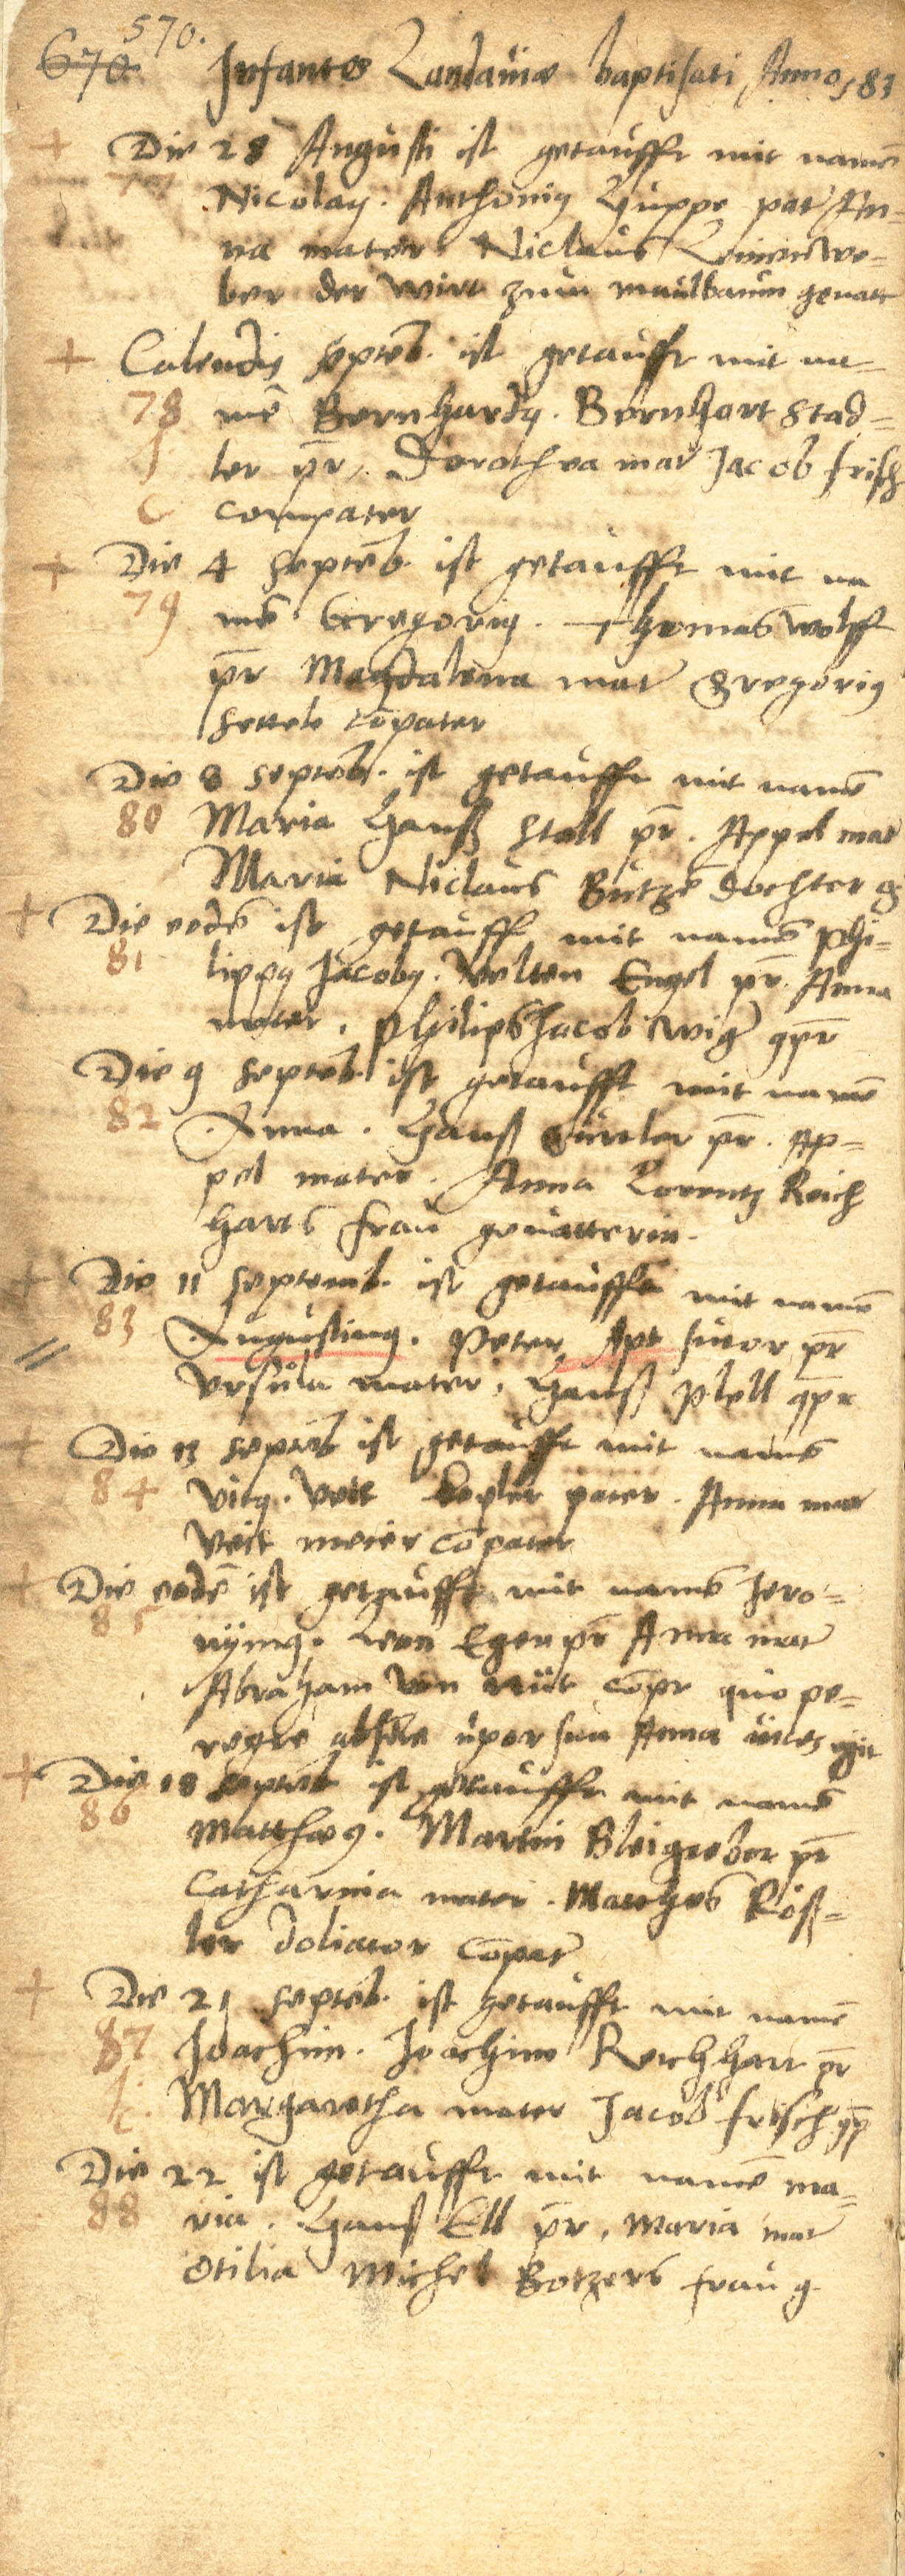 670 570.
Infantes Landaviæ baptisati Anno 581
Die 28 Augusti ist getaufft mit namē
77 Nicolaꝰ. Anthoniꝰ Huppe pater An-
na mater Niclaus Leinenwe-
ber der wirt zum maulbaum gevatt
Calendis Septēb. ist getaufft mit na-
78 mē Bernhardꝰ. Bernhart Stad-
ler pr̄. Dorothea mat Jacob frisch
compater
Die 4 Septēb. ist getaufft mit na
79 mē Gregoriꝰ. Thomas Wolff
pr̄ Magdalena mat Gregoriꝰ
cōpater
Die 8 Septēb. ist getaufft mit namē
80 Maria Hanß Stoll pr̄. Appel mat
Maria Niclaus Butzē dochter g
Die eodē ist getauff mit namē Phi-
81 lippꝰ Jacobꝰ. Velten Engel pr̄. Anna
mater. Philips Jacob gpr̄
Die 9 Septēb ist getaufft mit namē
82 Anna. Hanß pr̄. Ap-
pel mater. Anna Lorentz Reich
harts frau gevatterin.
Die 11 Septemb. ist getaufft mit namē
83 Augustinꝰ. Peter Apt sutor pr̄
Ursula mater. Hanß Plell gpr
Die 13 Septēb ist getaufft mit namē
84 Vitꝰ. Veit Kepler pater. Anna mat
Veit meier cōpater
Die eodē ist getaufft mit namē Jero-
85 nÿmꝰ. Egen pr̄ Anna mat
Abraham von cōpr quo pe-
regre absēte uxor sua Anna vices egit
Die 18 Septēb ist getaufft mit namē
86 Matthæꝰ. Martin Bleigeber pr̄
Catharina mater. Matthes Röß-
ler doliator cōpat
Die 21 Septēb. ist getaufft mit namē
87 Joachim. Joachim Reichhart pr̄
Margaretha mater Jacob frisch gp̄
Die 22 ist getaufft mit namē ma-
88 ria. Hanß Ell pr̄, Maria mat
Otilia Michel Botzers frau g.